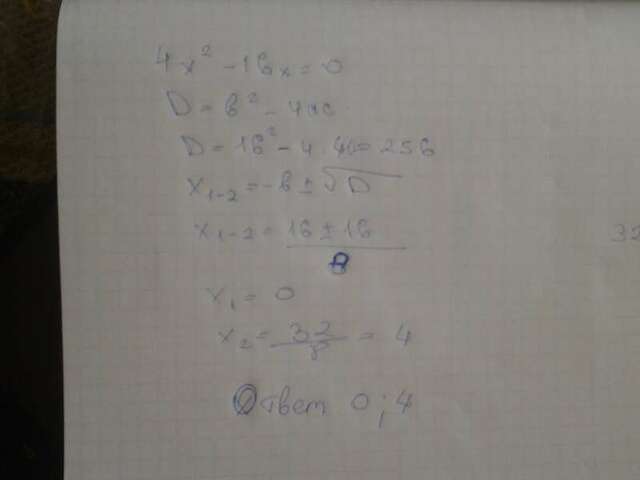 4x² - 16x = 0
D = b² - 4ac
D = 16² - 4 · 4 = 256
x₁₋₂ = -b ± √D
x₁₋₂ = 16 ± 16 / 8
x₁ = 0
x₂ = 32 / 8 = 4
Ответ 0; 4
32